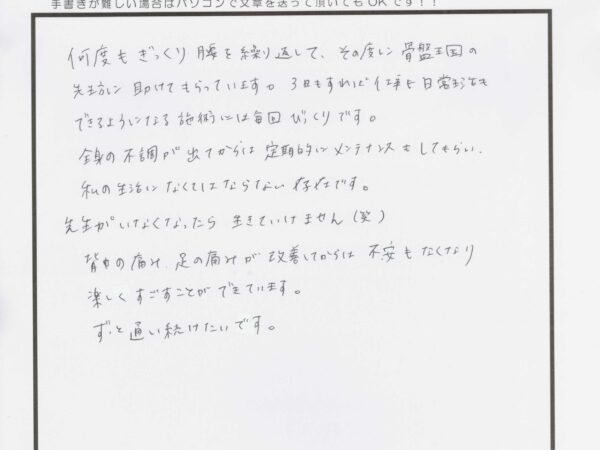 手書きが難しい場合はパソコンで文章を送って頂いてもOKです！！
何度もぎっくり腰を繰り返して、その度に骨盤王国の
先生方に助けてもらっています。3日もすれば仕事も日常生活も
できるようになる施術には毎回びっくりです。
全身の不調が出てからは定期的にメンテナンスもしてもらい、
私の生活になくてはならない存在です。
先生がいなくなったら生きていけません(笑)
背中の痛み、足の痛みが改善してからは不安もなくなり
楽しくすごすことができています。
ずっと通い続けたいです。